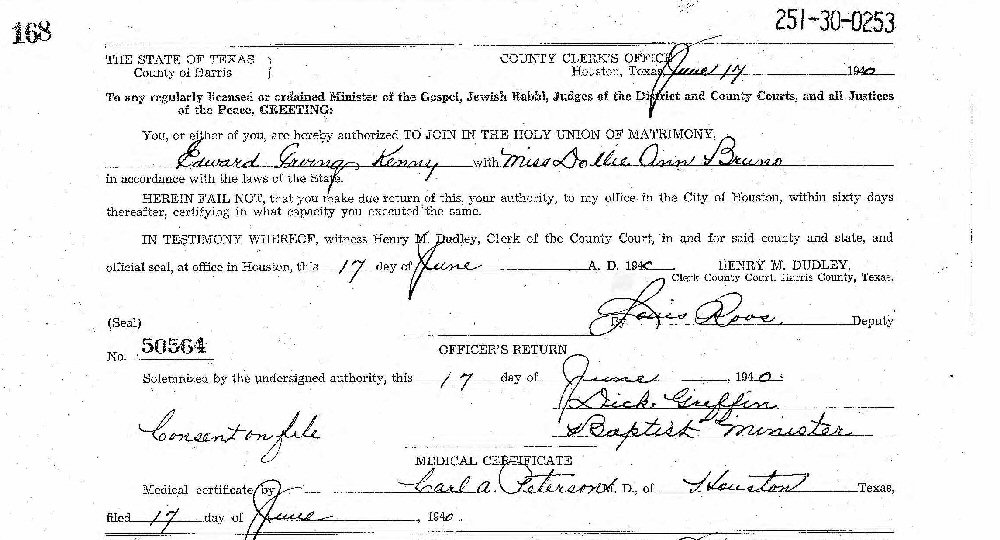 168
251-30-0253
THE STATE OF TEXAS } COUNTY CLERK'S OFFICE
County of Harris } Houston, Texas, June 17 1940
To any regularly licensed or ordained Minister of the Gospel, Jewish Rabbi, Judges of the District and County Courts, and all Justices
of the Peace, GREETING:
You, or either of you, are hereby authorized TO JOIN IN THE HOLY UNION OF MATRIMONY,
Edward Irving Kenny with Miss Dollie Ann Bruno
in accordance with the laws of the State.
HEREIN FAIL NOT, that you make due return of this, your authority, to my office in the City of Houston, within sixty days
thereafter, certifying in what capacity you executed the same.
IN TESTIMONY WHEREOF, witness Henry M. Dudley, Clerk of the County Court, in and for said county and state, and
official seal, at office in Houston, this 17 day of June A. D. 1940 HENRY M. DUDLEY,
Clerk County Court, Harris County, Texas.
By Louis Roos, Deputy
(Seal)
No. 50564
OFFICER'S RETURN
Solemnized by the undersigned authority, this 17 day of June, 1940.
Dick Griffin
Consent on file
Baptist Minister
MEDICAL CERTIFICATE
Medical certificate by Carl A. Peterson M. D., of Houston Texas,
filed 17 day of June, 1940.